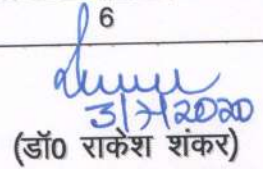 6
3/7/2020
(डॉ0 राकेश शंकर)